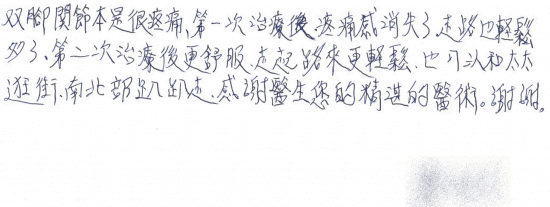 双腳關節本是很疼痛,第一次治療後疼痛感消失了.走路也輕鬆
多了,第二次治療後更舒服.走起路來更輕鬆.也可以和太太
逛街.南北部趴趴走.感謝醫生您的精湛的醫術。謝謝。